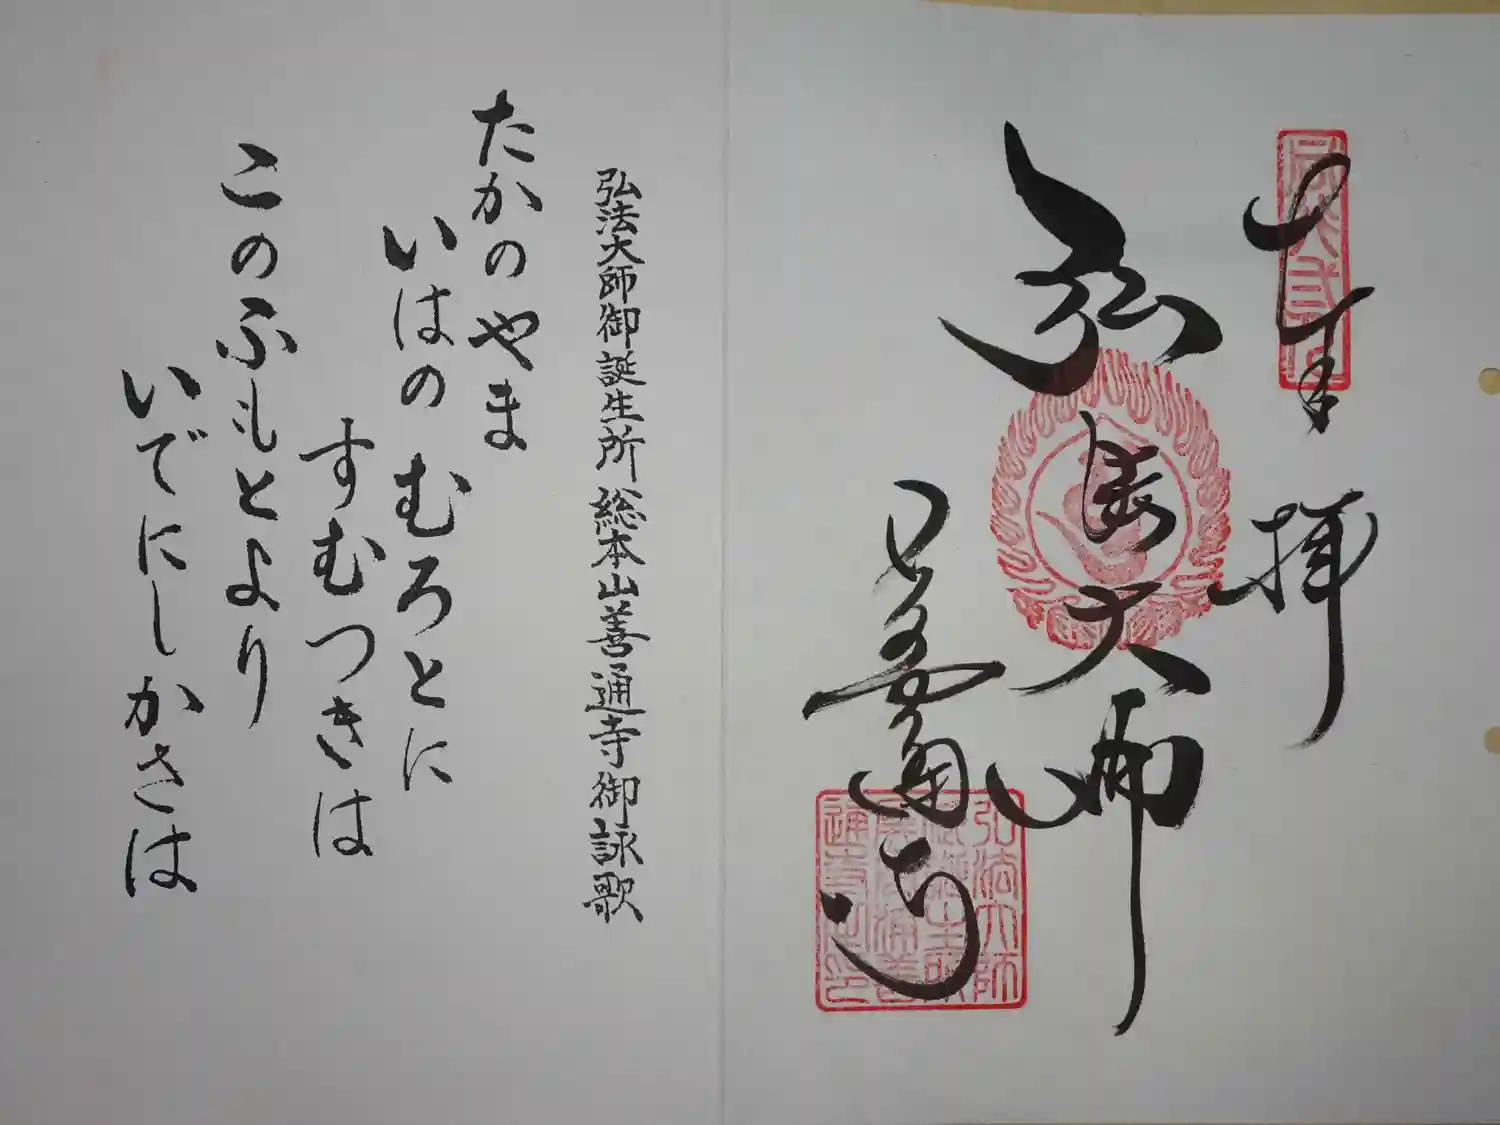 奉拝
弘法大師
善通寺
弘法大師
通寺之印
弘法大師御誕生所 総本山善通寺御詠歌
たかのやま
いはのむろとに
すむつきは
このふもとより
いでにしかさは